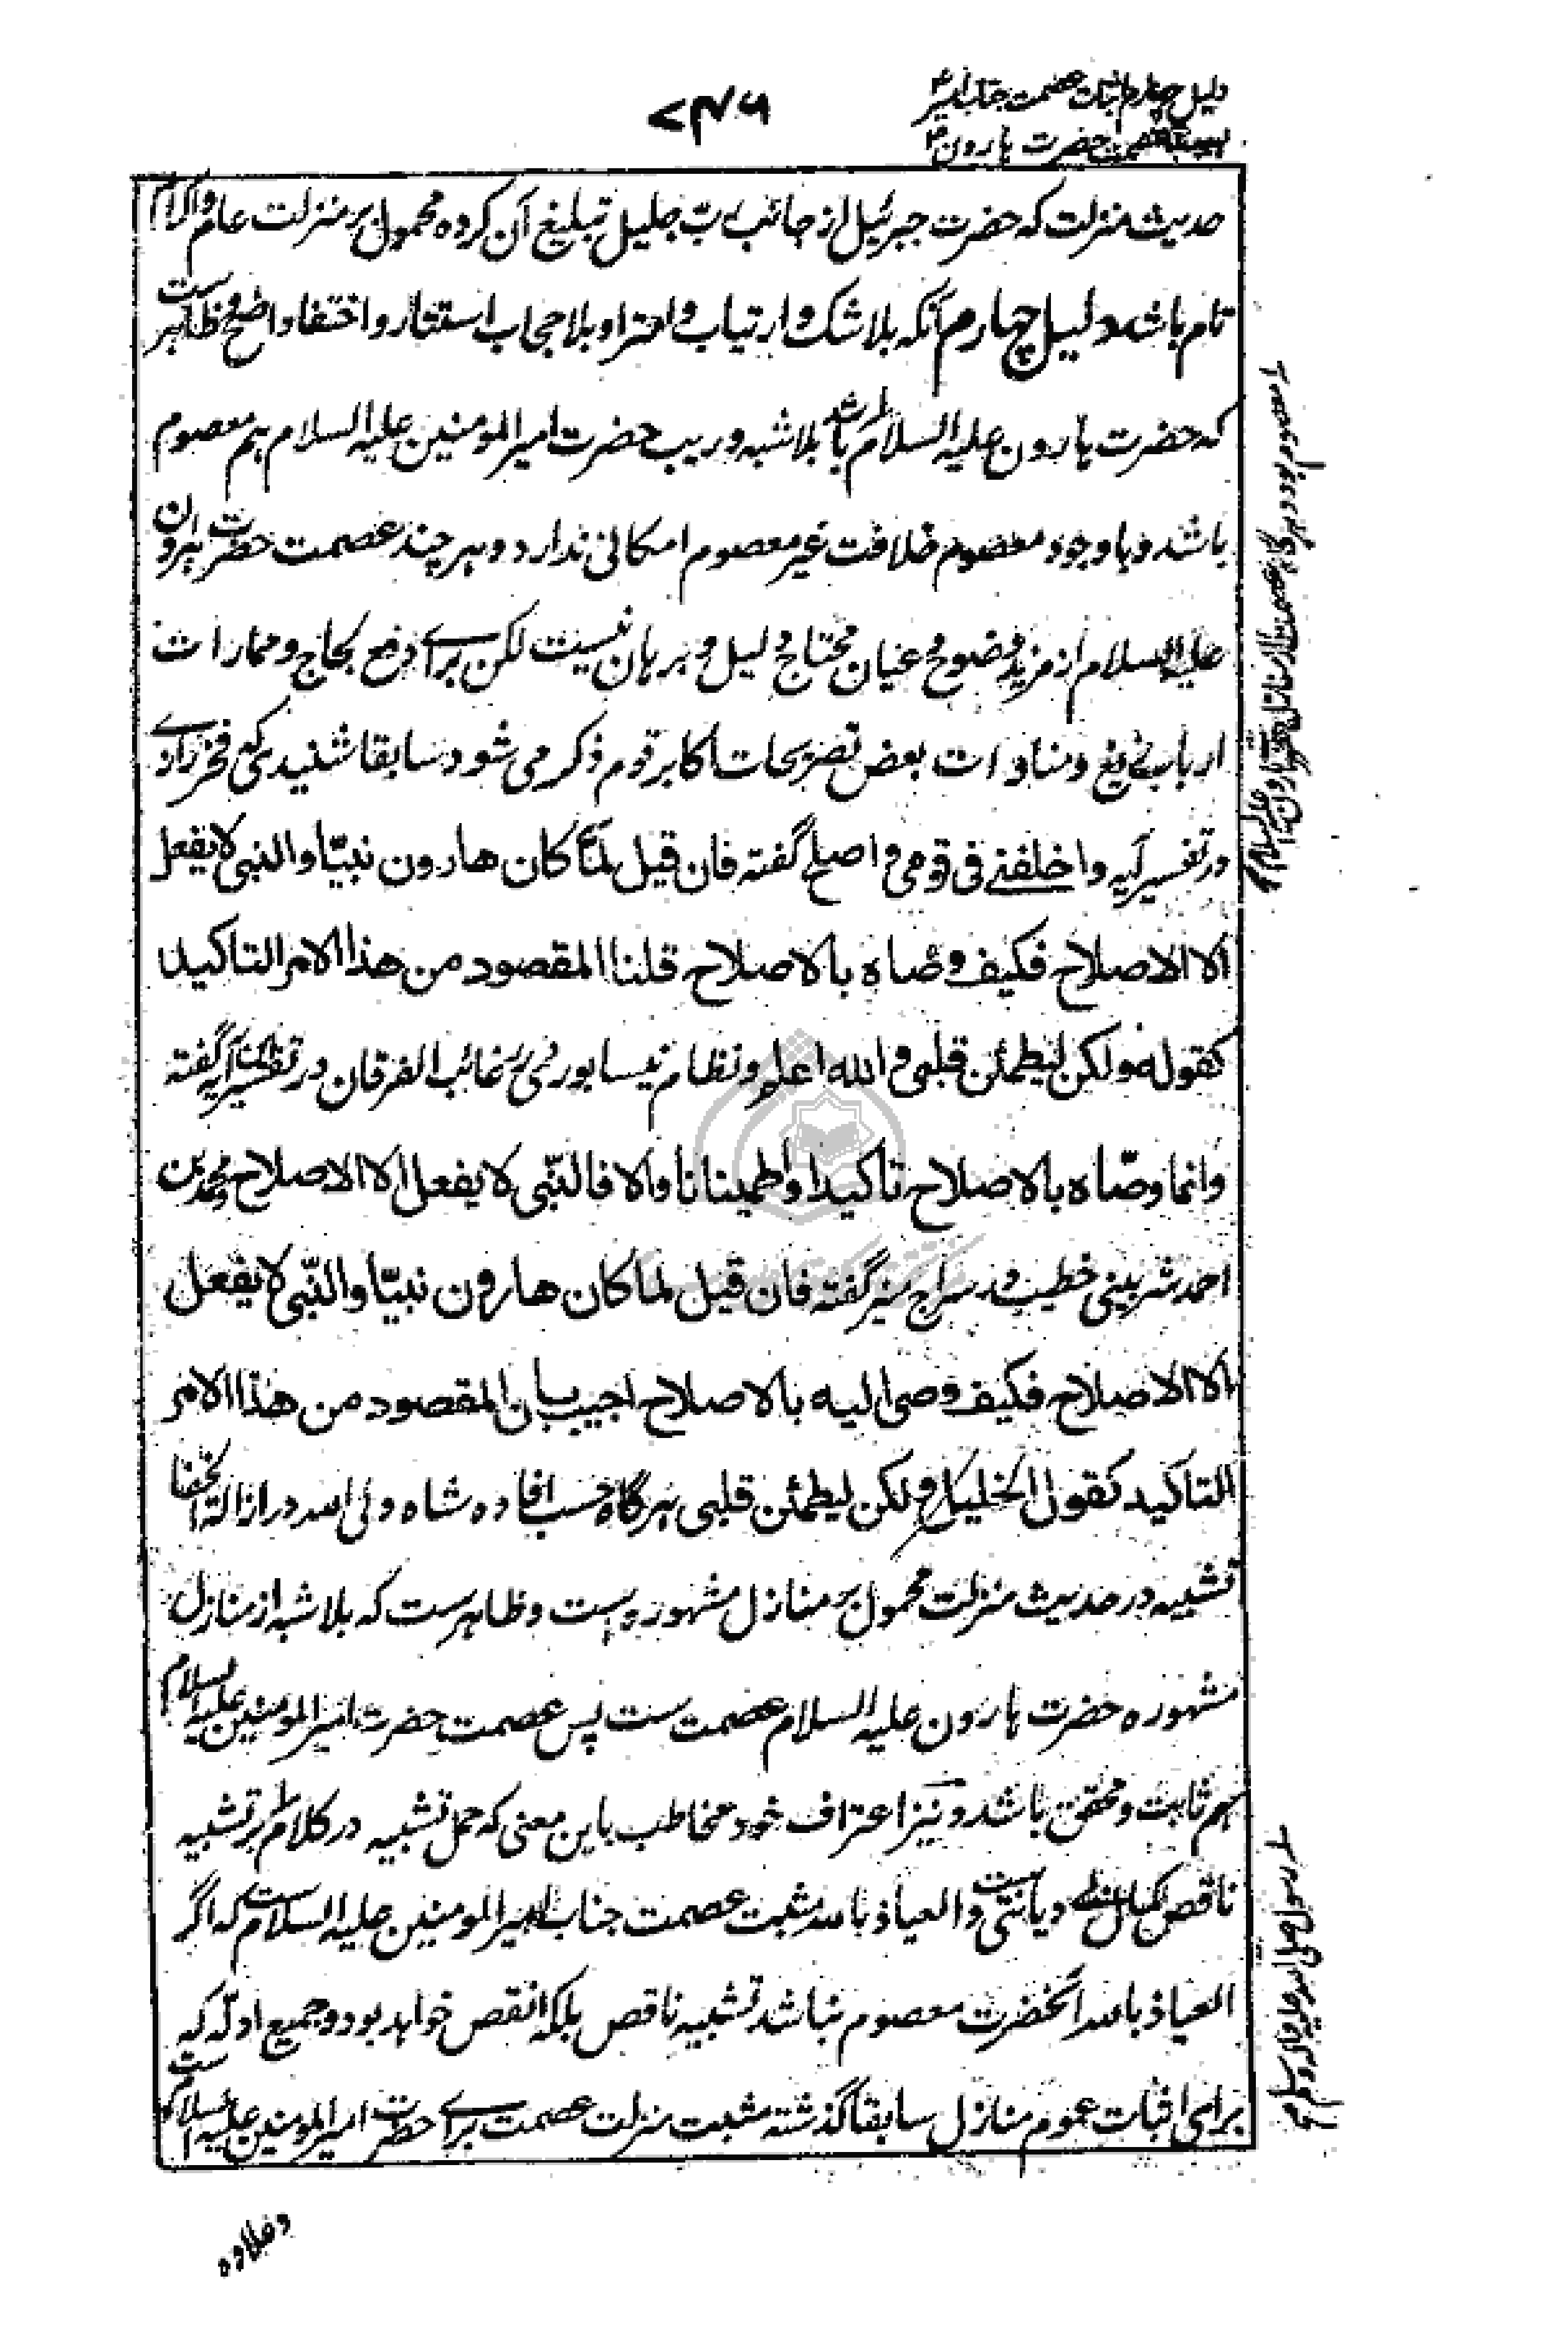 دلیل چهارم اثبات عصمت جناب امیر ؑ
بسبب عصمت حضرت هارون ؑ
۷۴۶
حدیث منزلت که حضرت جبرئیل از جانب ربّ جلیل تبلیغ آن کرده محمول بر منزلت عام و اکرام
تام باشد دلیل چهارم آنکه بلا شک و ارتیاب و امترا و بلا حجاب استتار و اختفا واضح و ظاهرست
که حضرت هارون علیه السلام باشد بلا شبه و ریب حضرت امیر المومنین علیه السلام هم معصوم
باشد و با وجود معصوم خلافت غیر معصوم امکانی ندارد و هر چند عصمت حضرت هرون
علیه السلام از مزید وضوح و عیان محتاج دلیل و برهان نیست لکن برای دفع لجاج و ممارات
ارباب زیغ و مناوات بعض تصریحات اکابر قوم ذکر می شود سابقا شنیدی که فخر رازی
در تفسیر آیه واخلفنی فی قومی و اصلح گفته فان قیل لمّا کان هارون نبیّا والنبی لا یفعل
الا الاصلاح فکیف وصّاه بالاصلاح قلنا المقصود من هذا الامر التاکید
کقوله ولکن لیطمئن قلبی والله اعلم و نظام نیسابوری در غائب الفرقان در تفسیر آیه گفته
وانما وصّاه بالاصلاح تاکیدا واطمینانا والا فالنّبی لا یفعل الا الاصلاح و محمد بن
احمد شربینی خطیب در سراج منیر گفته فان قیل لما کان هارون نبیّا والنّبی لا یفعل
الا الاصلاح فکیف وصی الیه بالاصلاح اجیب بان المقصود من هذا الامر
التاکید کقول الخلیل ولکن لیطمئن قلبی هرگاه حسب افاده شاه ولی الله در ازالة الخفا
تشبیه در حدیث منزلت محمول بر منازل مشهوره است و ظاهرست که بلا شبه از منازل
مشهوره حضرت هارون علیه السلام عصمت ست پس عصمت حضرت امیر المومنین علیه السلام
هم ثابت و محقق باشد و نیز اعتراف خود مخاطب باین معنی که حمل تشبیه در کلام بر تشبیه
ناقص کمال دیانتی ست والعیاذ بالله مثبت عصمت جناب امیر المومنین علیه السلام ست که اگر
العیاذ بالله آنحضرت معصوم نباشد تشبیه ناقص بلکه انقص خواهد بود و جمیع ادلّه که
برای اثبات عموم منازل سابقا گذشته مثبت منزلت عصمت برای حضرت امیر المومنین علیه السلام ست
معصوم بود و هرگاه عصمت از منازل حضرت هارون علیه السلام
رسول صلی الله علیه و آله و سلم
وعلاوه